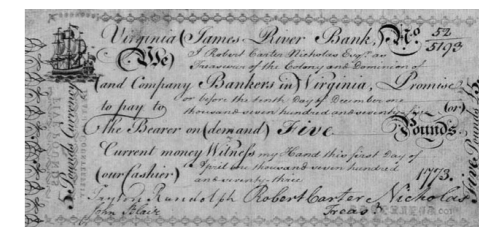 Virginia (James River Bank,) No. 52
5193
(We) I Robert Carter Nicholas Esqr. an
Treasurer of the Colony and Dominion of
(and Company Bankers in) Virginia, Promise
to pay to or before the tenth Day of December one
thousand seven hundred and seventy five (or)
the Bearer on (demand) Five Pounds
Current money Witness my Hand this first Day of
(our Cashier) April One thousand seven hundred
and seventy three 1773.
Peyton Randolph Robert Carter Nicholas
John Blair Treasr.
5 Pounds Currency
Five Pounds